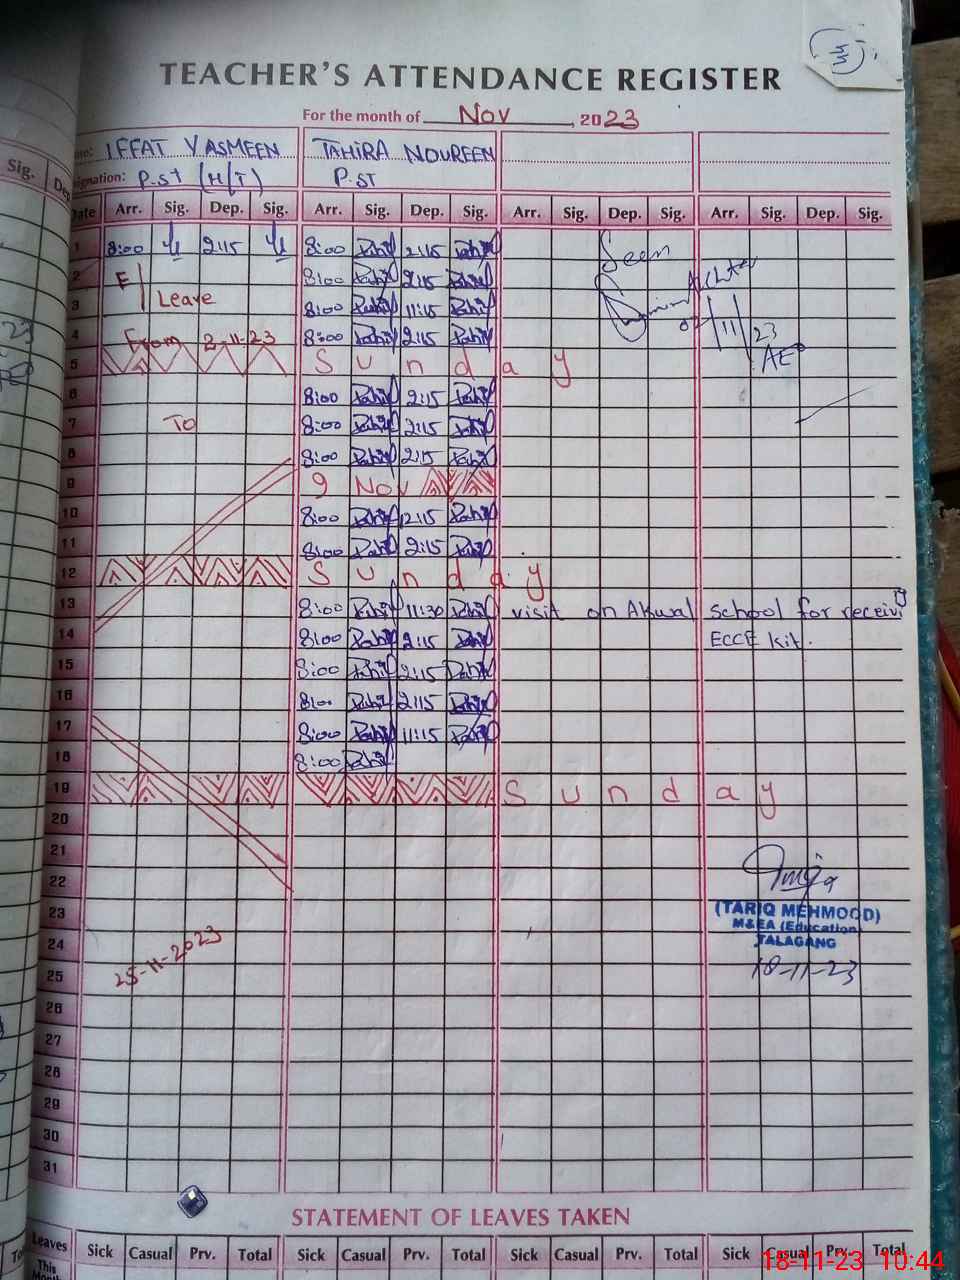 5/5
TEACHER'S ATTENDANCE REGISTER
For the month of Nov, 2023
IFFAT YASMEEN TAHIRA NOUREEN
Designation: P.st (H/T) P.ST
Sig. Dep
Date Arr. Sig. Dep. Sig. Arr. Sig. Dep. Sig. Arr. Sig. Dep. Sig. Arr. Sig. Dep. Sig.
1 8:00 2:15 8:00 2:15 Seen
2 E 8:00 2:15
3 Leave 8:00 11:15 11 23
4 From 2-11-23 8:00 2:15 AEO
5 Sunday
6 8:00 2:15
7 To 8:00 2:15
8 8:00 2:15
9 9 Nov
10 8:00 2:15
11 8:00 2:15
12 Sunday
13 8:00 11:30 visit on Akwal school for receivig
14 8:00 2:15 ECCE kit.
15 8:00 2:15
16 8:00 2:15
17 8:00 11:15
18 8:00
19 Sunday
20
21
22
23 (TARIQ MEHMOOD)
M&EA (Education)
24 TALAGANG
25 25-11-2023 18-11-23
26
27
28
29
30
31
STATEMENT OF LEAVES TAKEN
Leaves Sick Casual Prv. Total Sick Casual Prv. Total Sick Casual Prv. Total Sick Casual Prv. Total
This
18-11-23 10:44